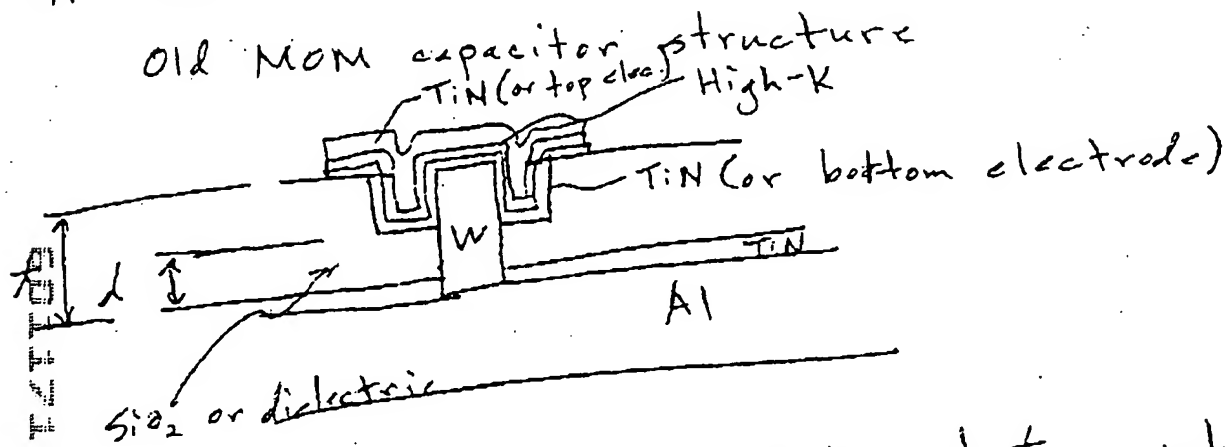 Old MOM capacitor structure
TiN (or top elec.)
High-K
TiN (or bottom electrode)
W
TiN
t
d
Al
SiO2 or dielectric